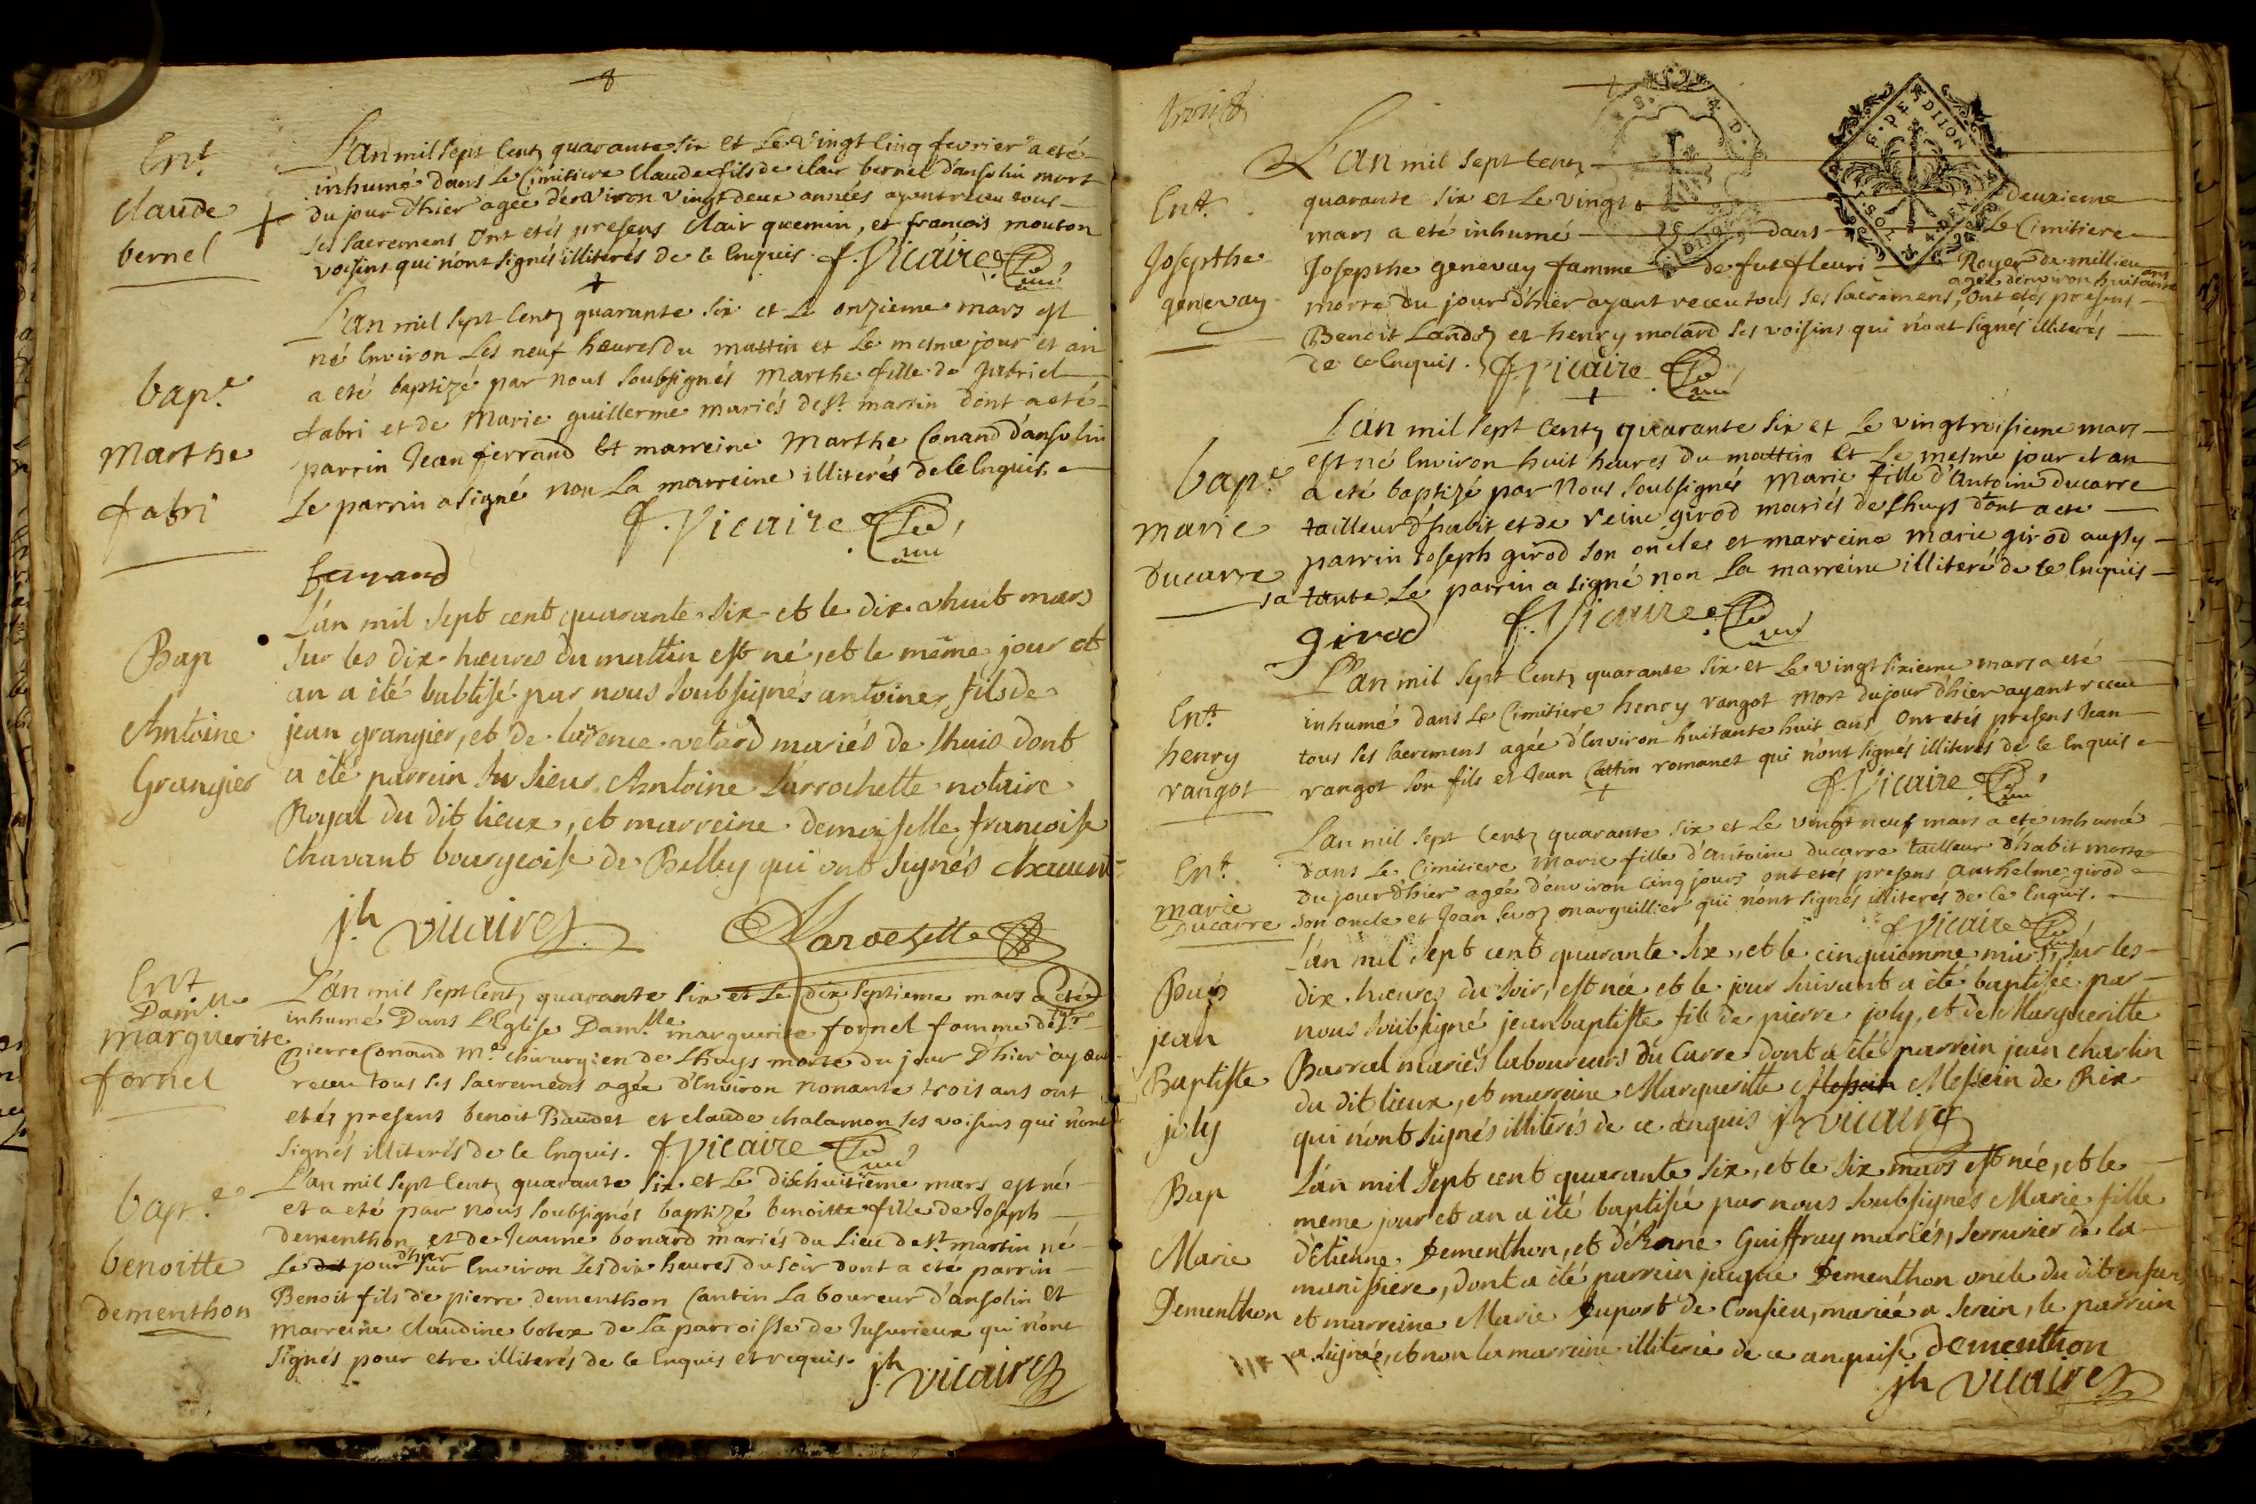 Ent.
claude
bernel
L'an mil sept Centz quarante six et Le vingt Cinq fevrier a eté
inhumé dans Le Cimitiere Claude fils de clair bernel d'ansolin mort
du jour d'hier agée d'environ vingt deux années ayent receu tous
ses sacremens Ont etés presens Clair quemin, et françois mouton
voisins qui n'ont signés illiterés de ce Enquis. f. Vicaire
Curé
bap.e
Marthe
fabri
L'an mil sept Centz quarante six et Le onzieme mars est
né Environ Les neuf heures du mattin et Le mesme jour et an
a eté baptizé par nous soubsignés Marthe fille de gabriel
fabri et de Marie guillerme mariés de st. martin dont a eté
parrin Jean ferrand Et marreine Marthe Conand d'ansolin
Le parrin a signé non La marreine illiterés de ce Enquis.
f. Vicaire Curé
ferrand
Bap
Antoine
Grangier
L'an mil sept cent quarante six et le dix-a huit mars
sur les dix heures du mattin est né, et le même jour et
an a été babtisé par nous soubsignés antoine, fils de
jean grangier, et de lorence vetard mariés de Lhuis dont
a été parrein Sr sieur Antoine Larrochette notaire
Royal du dit lieux, et marreine demoiselle francoise
Chavant bourgeoise de Belley qui ont signés
jh vicaire Larochette
Ent
Dam.lle
marguerite
fornel
L'an mil sept Centz quarante six et Le dix septieme mars a eté
inhumé Dans L'Eglise Dam.lle marguerite fornel famme de sr
pierre Conand Me. chirurgien de Lhuys morte du jour D'hier ayant
receu tous ses sacremens agée d'Environ nonante trois ans ont
etés presens benoit Baudet et claude chalamon ses voisins qui n'ont
signés illiterés de ce Enquis. f. Vicaire Curé
bapt.e
benoitte
dementhon
L'an mil sept Centz quarante six et Le dixhuitieme mars est né
et a eté par nous soubsignés baptizé benoitte fille de Joseph
dementhon et de Jeanne bonard mariés du Lieu de st. martin né
Le dit jour d'hyer sur Environ Les dix heures du soir dont a eté parrin
Benoit fils de pierre dementhon Cantin Laboureur d'ansolin Et
marreine claudine botex de La parroisse de Jusurieux qui n'ont
signés pour etre illiterés de ce Enquis et requis.
jh vicaire
Ent.
Josepthe
genevay
L'an mil sept Centz
quarante six et Le vingt deuxieme
mars a eté inhumé dans Le Cimitiere
Josepthe genevay famme de fut fleuri Royer de millieu
agée d'environ huitante ans
morte du jour d'hier ayant receu tous ses sacremens, Ont etés presens
Benoit Landoz et henry molard ses voisins qui n'ont signés illiterés
de ce Enquis. f. Vicaire Curé
bap.e
marie
ducarre
L'an mil sept Centz quarante six et Le vingtroisieme mars
est né Environ huit heures du mattin Et Le mesme jour et an
a eté baptizé par Nous soubsignés Marie fille d'Antoine ducarre
tailleur d'habit et de reine girod mariés de Lhuys dont acte
parrin Joseph girod son oncle et marreine marie girod aussy
sa tante Le parrin a signé non La marreine illiteré de ce Enquis
girod f. Vicaire Curé
Ent.
henry
rangot
L'an mil sept Centz quarante six et Le vingt sixieme mars a eté
inhumé dans Le Cimitiere henry rangot mort du jour d'hier ayant receu
tous ses sacremens agée d'Environ huitante huit ans Ont etés presens Jean
rangot son fils et Jean Cattin romanet qui n'ont signés illiterés de ce Enquis
f. Vicaire Curé
Ent.
marie
Ducarre
L'an mil sept Centz quarante six et Le vingt neuf mars a eté inhumé
dans Le Cimitiere Marie fille d'Antoine ducarre tailleur d'habit morte
du jour d'hier agée d'environ cinq jours ont etés presens anthelme girod
son oncle et Jean sevoz marguillier qui n'ont signés illiterés de ce Enquis.
f. Vicaire Curé
jean
Baptiste
joly
L'an mil sept cent quarante six, et le cinquiemme mars, sur les
dix heures du soir, est née et le jour suivant a été baptisée par
nous soubsigné jean baptiste fils de pierre joly, et de Margueritte
Barral mariés laboureurs du Carre dont a été parrein jean charlin
du dit lieux, et marreine Marguerite Messein de Rix
qui n'ont signés illiterés de ce enquis jh vicaire
Bap
Marie
Dementhon
L'an mil sept cent quarante six, et le six mars est née, et le
meme jour et an a été baptisée par nous soubsignés Marie fille
d'Etienne Dementhon, et d'Etienne Guiffray mariés, serrurier de la
manissiere, dont a été parrein jacque Dementhon oncle du dit enfant
et marreine Marie Duport de Consieu, mariée a Serein, le parrein
a signée, et non la marreine illiterée de ce anquise dementhon
jh vicaire